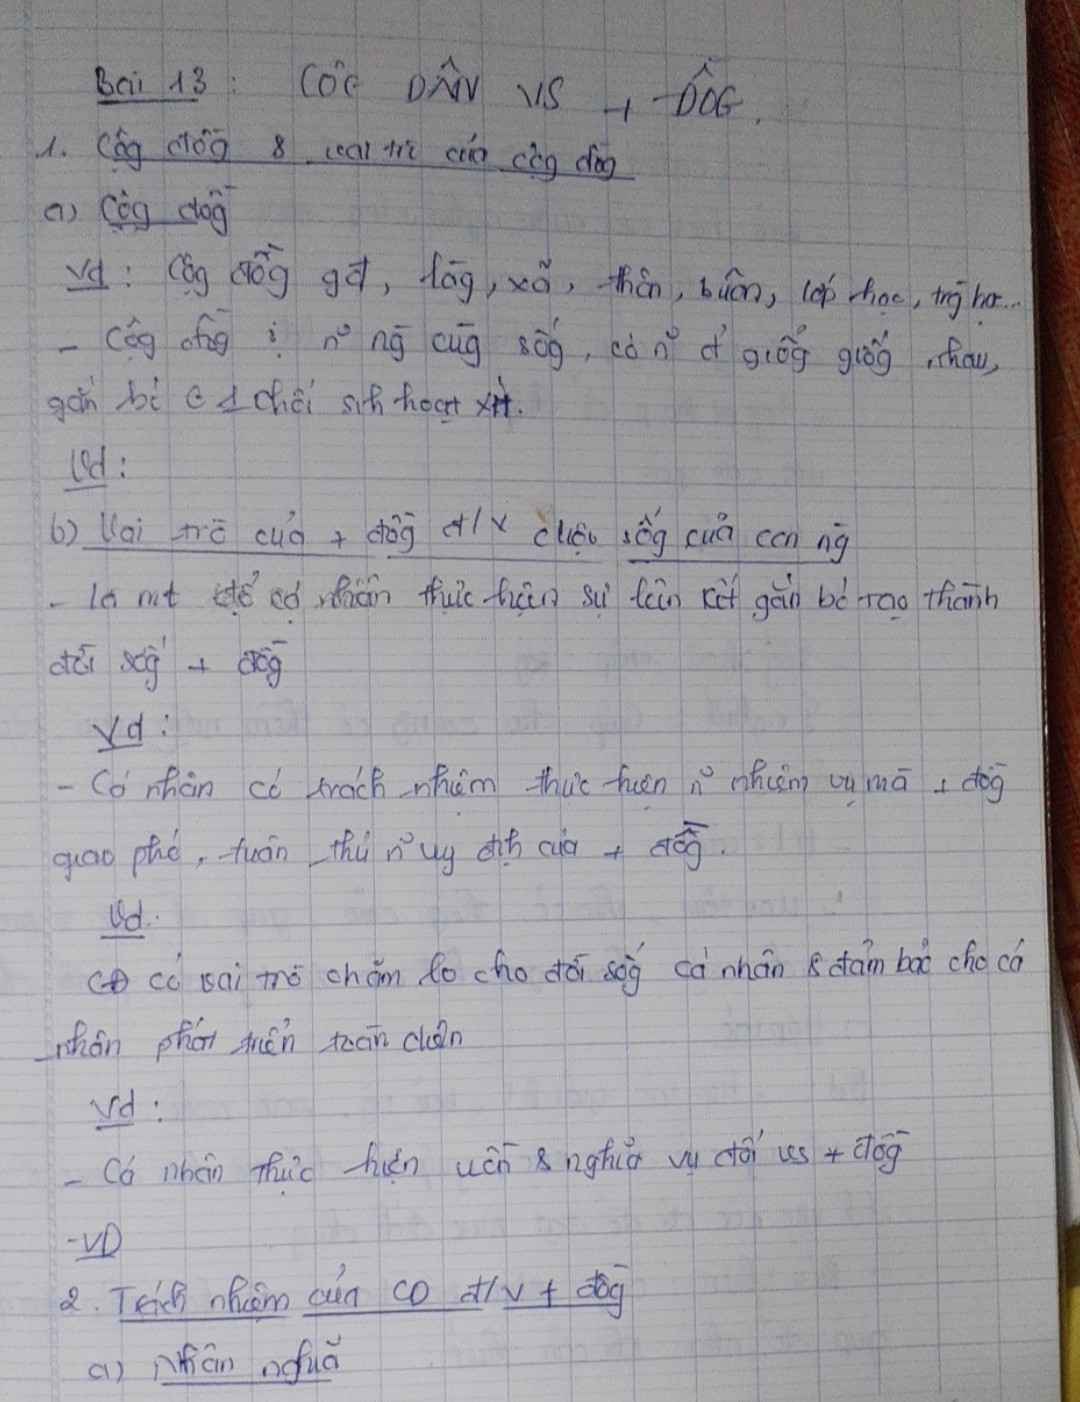 Bài 13: CÔG DÂN VS + ĐỒG.
1. Cộg đồg & vai trò của cộg đồg
a) Cộg đồg
Vd: Cộg đồg gđ, làg, xã, thôn, buôn, lớp học, trg học...
- Cộg đồg : n° ng cùg sốg, có n° đ giốg giốg nhau,
gắn bó 1 khối sih hoạt XH.
Vd:
b) Vai trò của + đồg đ/v cuộc sốg của con ng
- là mt để cá nhân thực hiện sự liên kết gắn bó tạo thành
đời sốg + đồg
Vd:
- Cá nhân có trách nhiệm thực hiện n° nhiệm vụ mà + đồg
giao phó, tuân thủ n° uy địh của + đồg.
Vd:
CĐ có vai trò chăm lo cho đời sốg cá nhân & đảm bảo cho cá
nhân phát triển toàn diện
Vd:
- Cá nhân thực hiện uền & nghĩa vụ đối vs + đồg
- VD
2. Trách nhiệm của CD đ/v + đồg
a) Nhân nghĩa